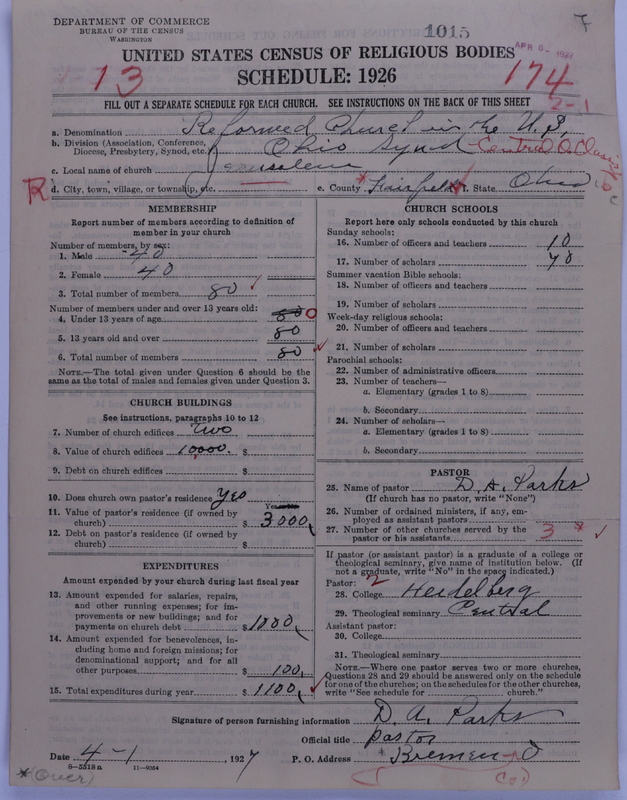 DEPARTMENT OF COMMERCE
BUREAU OF THE CENSUS
WASHINGTON
1015
7
APR 6- 1927
UNITED STATES CENSUS OF RELIGIOUS BODIES
SCHEDULE: 1926
13
174
FILL OUT A SEPARATE SCHEDULE FOR EACH CHURCH. SEE INSTRUCTIONS ON THE BACK OF THIS SHEET
2-1
a. Denomination Reformed Church in the U.S,
b. Division (Association, Conference, Diocese, Presbytery, Synod, etc.) Ohio Synod - Central O. Classis
c. Local name of church Jerusalem
R d. City, town, village, or township, etc. e. County * Fairfield f. State Ohio
MEMBERSHIP
Report number of members according to definition of
member in your church
Number of members, by sex:
1. Male 40
2. Female 40
3. Total number of members 80
Number of members under and over 13 years old:
4. Under 13 years of age 0
5. 13 years old and over 80
6. Total number of members 80
NOTE.—The total given under Question 6 should be the
same as the total of males and females given under Question 3.
CHURCH BUILDINGS
See instructions, paragraphs 10 to 12
7. Number of church edifices two
8. Value of church edifices 10,000. $
9. Debt on church edifices $
10. Does church own pastor's residence Yes
Yes
11. Value of pastor's residence (if owned by
church) $ 3000
12. Debt on pastor's residence (if owned by
church) $
EXPENDITURES
Amount expended by your church during last fiscal year
13. Amount expended for salaries, repairs,
and other running expenses; for im-
provements or new buildings; and for
payments on church debt $ 1000
14. Amount expended for benevolences, in-
cluding home and foreign missions; for
denominational support; and for all
other purposes $ 100
15. Total expenditures during year $ 1100
CHURCH SCHOOLS
Report here only schools conducted by this church
Sunday schools:
16. Number of officers and teachers 10
17. Number of scholars 70
Summer vacation Bible schools:
18. Number of officers and teachers
19. Number of scholars
Week-day religious schools:
20. Number of officers and teachers
21. Number of scholars
Parochial schools:
22. Number of administrative officers
23. Number of teachers—
a. Elementary (grades 1 to 8)
b. Secondary
24. Number of scholars—
a. Elementary (grades 1 to 8)
b. Secondary
PASTOR
25. Name of pastor D. A. Parks
(If church has no pastor, write "None")
26. Number of ordained ministers, if any, em-
ployed as assistant pastors
27. Number of other churches served by the
pastor or his assistants 3 *
If pastor (or assistant pastor) is a graduate of a college or
theological seminary, give name of institution below. (If
not a graduate, write "No" in the space indicated.)
Pastor: 2
28. College Heidelberg
29. Theological seminary Central
Assistant pastor:
30. College
31. Theological seminary
NOTE.—Where one pastor serves two or more churches,
Questions 28 and 29 should be answered only on the schedule
for one of the churches; on the schedules for the other churches,
write "See schedule for church."
Signature of person furnishing information D. A. Parks
Official title pastor
Date 4-1, 1927 P. O. Address * Bremen O
8-5518a 11-9054
*(Over)
Co.)